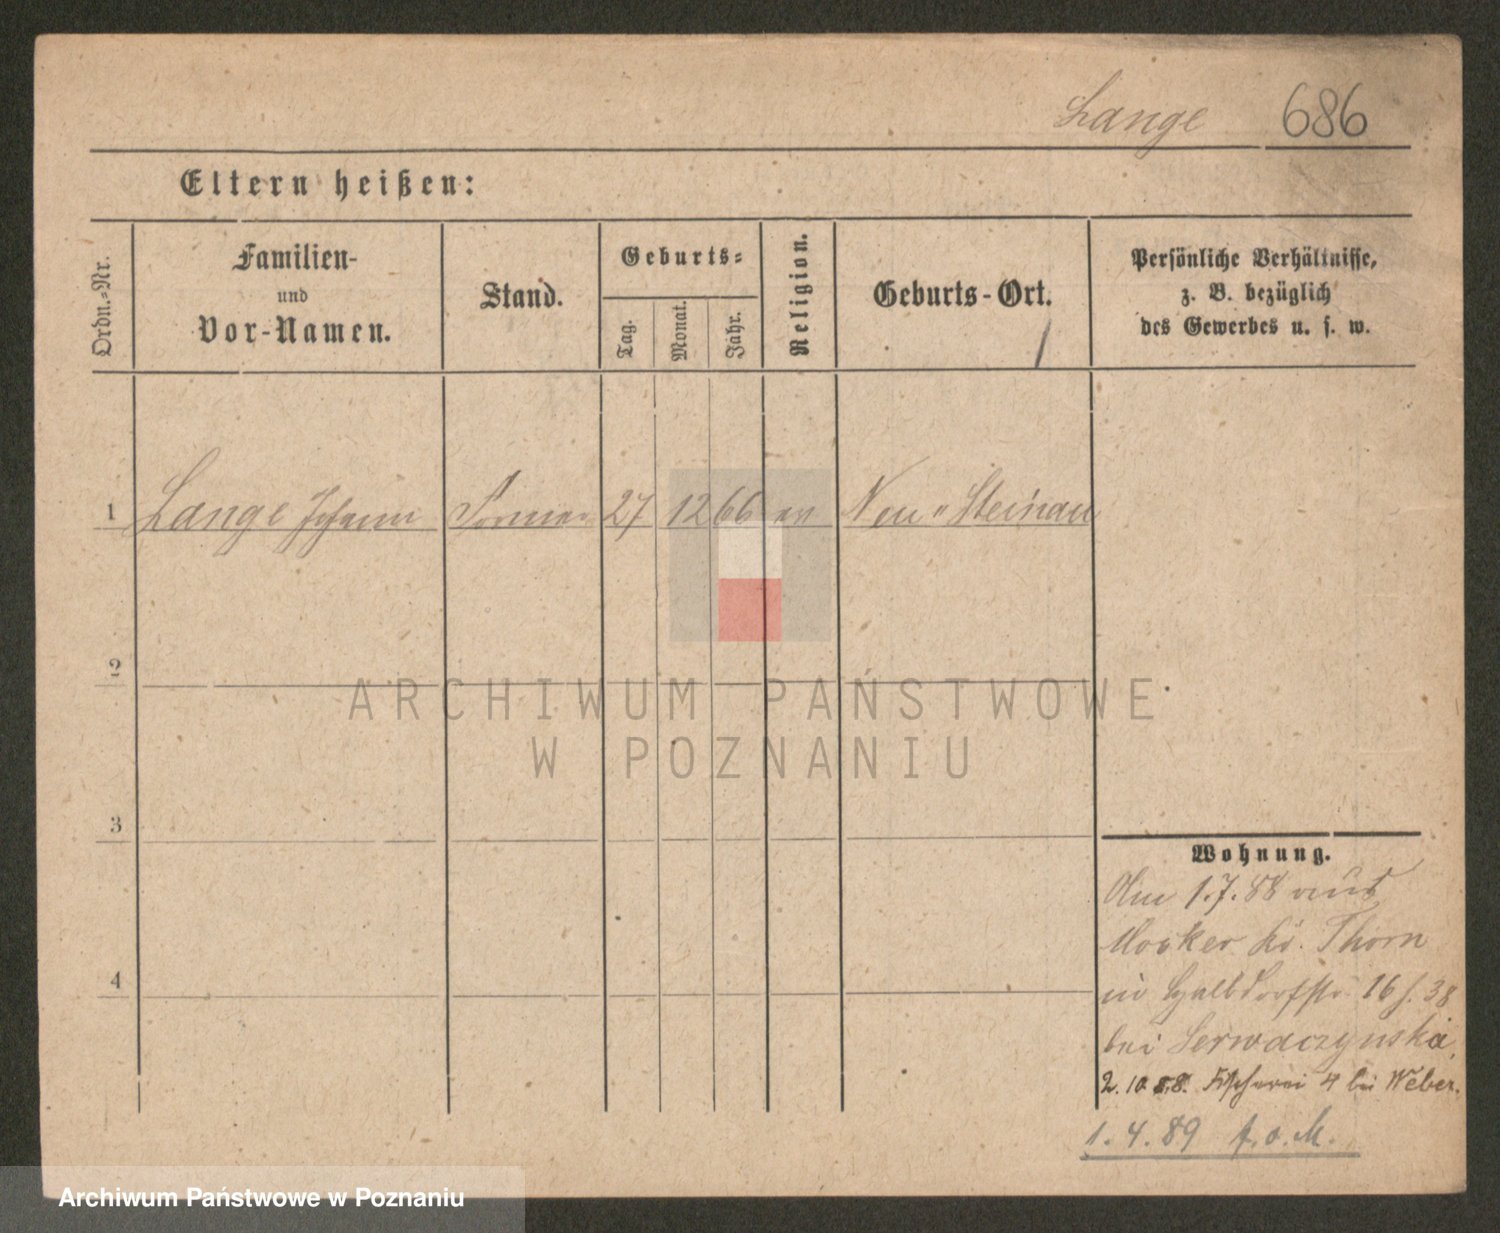 Lange 686
Eltern heißen:
Ordn.-Nr.
Familien-
und
Vor-Namen.
Stand.
Geburts-
Tag.
Monat.
Jahr.
Religion.
Geburts-Ort.
Persönliche Verhältnisse,
z. B. bezüglich
des Gewerbes u. s. w.
1 Lange Johann Former 27 12 66 ev Neu-Steinau
2
3
4
Wohnung.
Am 1.7.88 aus
Mocker Kr. Thorn
in Halbdorfstr. 16 f. 38
bei Serwaczynska,
2. 10 88. Fischerei 4 bei Weber.
1. 4. 89 f. o. M.
ARCHIWUM PAŃSTWOWE
W POZNANIU
Archiwum Państwowe w Poznaniu